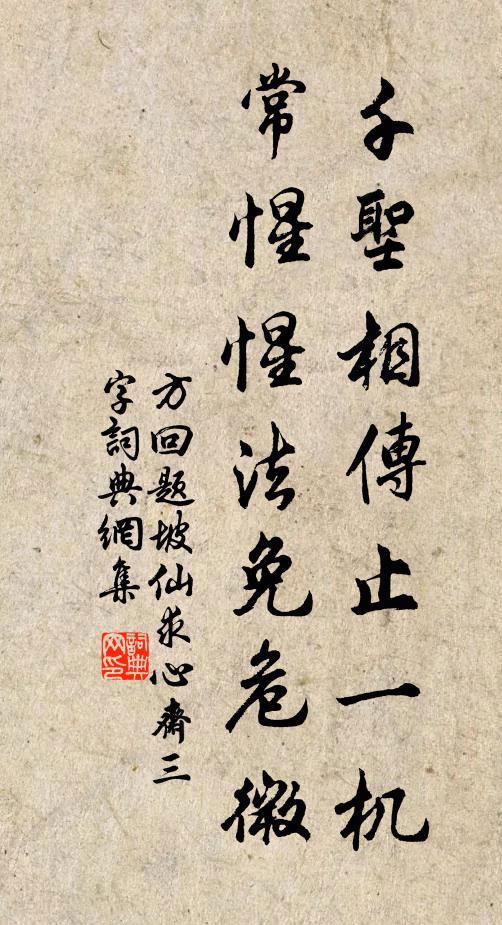 千聖相傳止一机
常惺惺法免危微
方回题坡仙求心齋三
字詞典網集
詞典网印